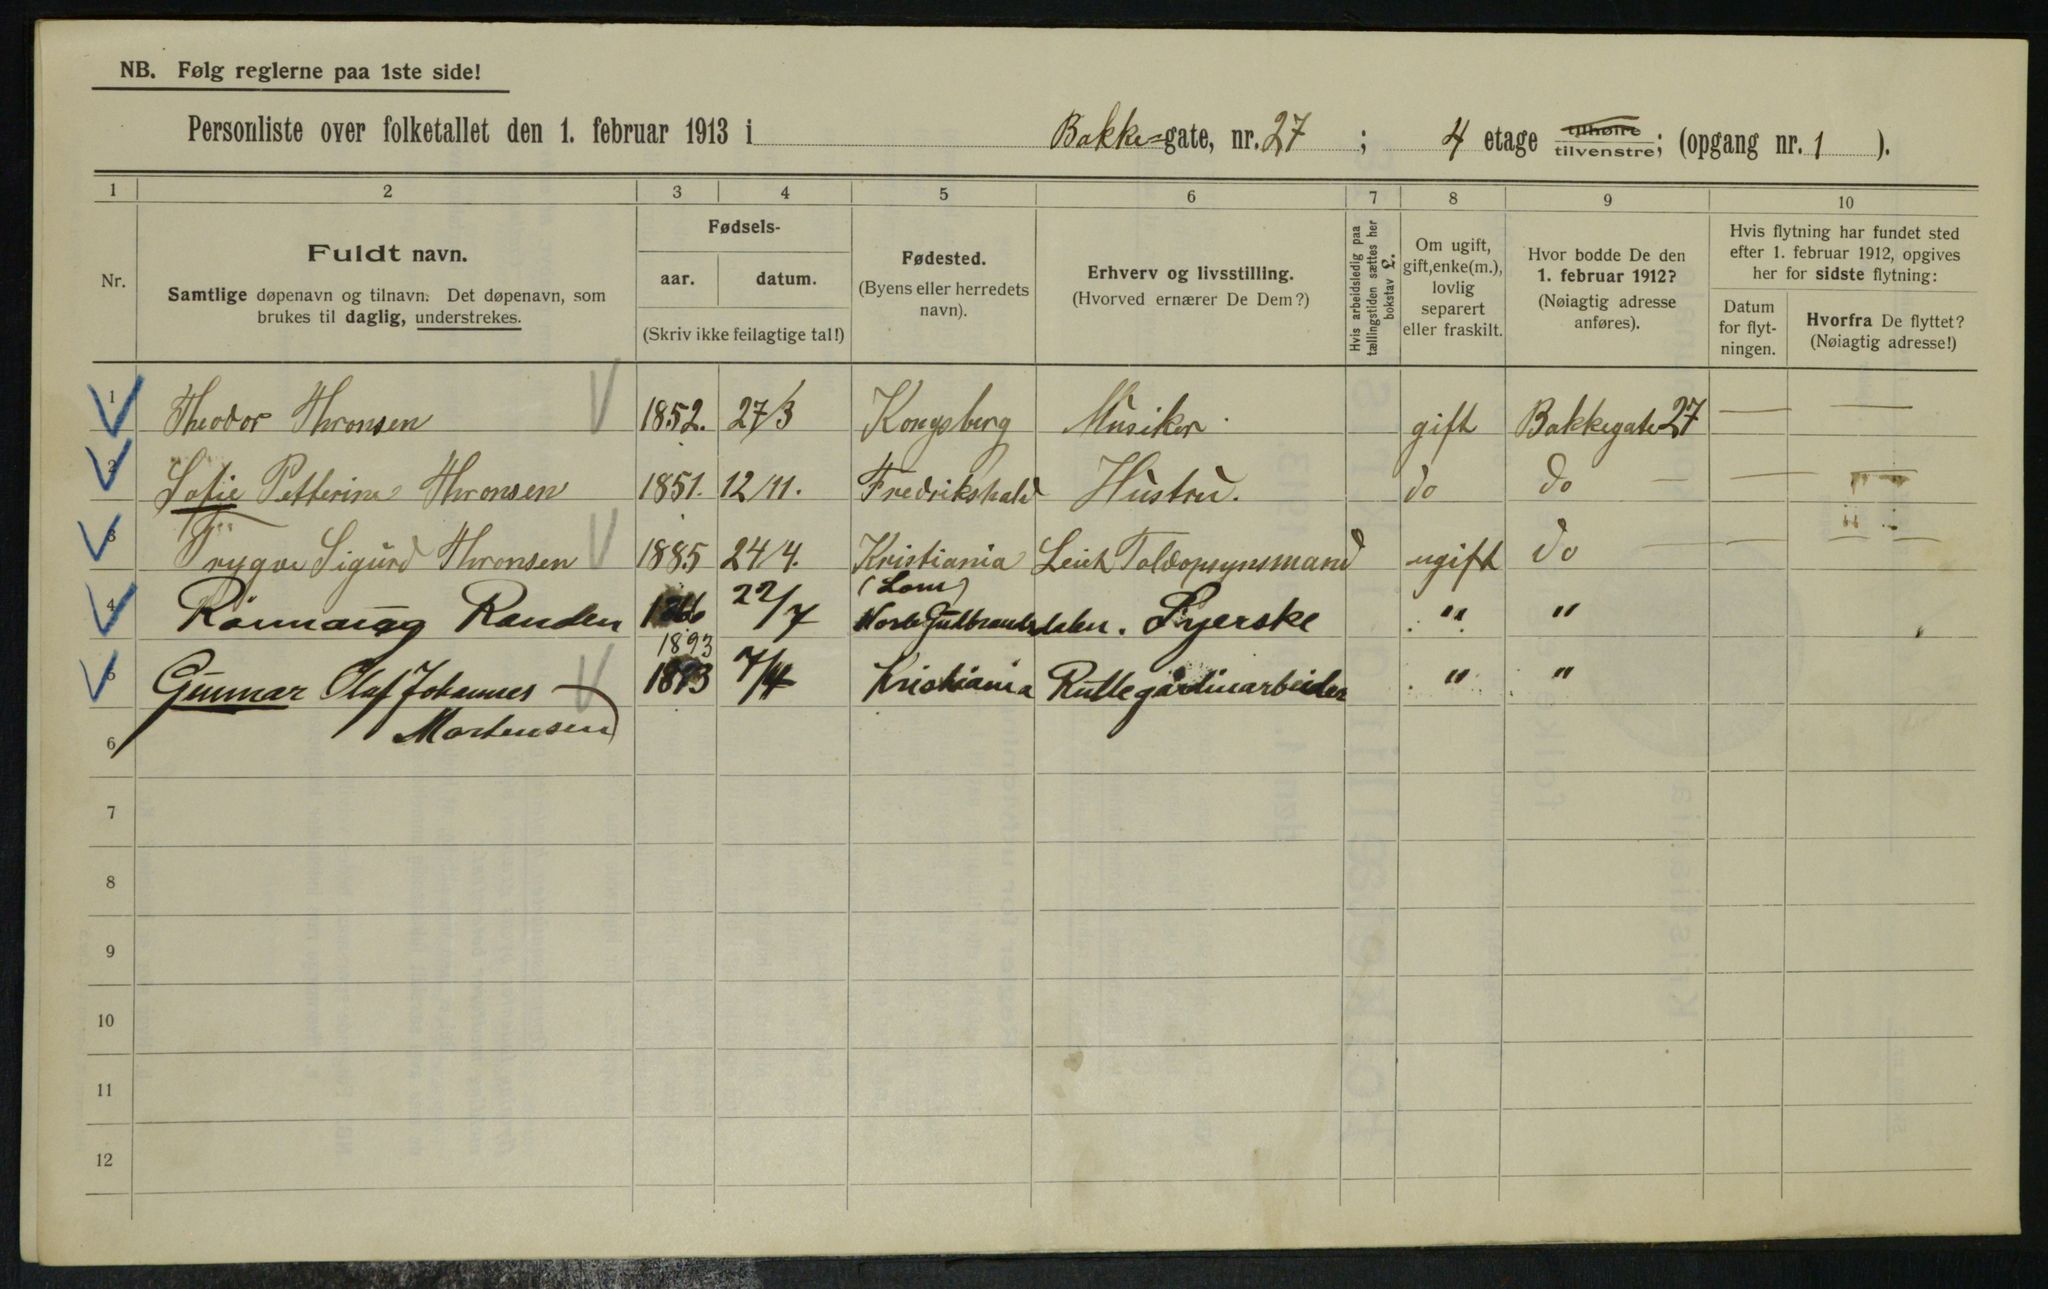 NB. Følg reglerne paa 1ste side!
Personliste over folketallet den 1. februar 1913 i Bakke-gate, nr. 27 ; 4 etage tilhøire tilvenstre; (opgang nr. 1 ).
1 2 3 4 5 6 7 8 9 10
Nr.
Fuldt navn.
Samtlige døpenavn og tilnavn. Det døpenavn, som
brukes til daglig, understrekes.
Fødsels-
aar. datum.
(Skriv ikke feilagtige tal!)
Fødested.
(Byens eller herredets
navn).
Erhverv og livsstilling.
(Hvorved ernærer De Dem?)
Hvis arbeidsledig paa
tællingstiden sættes her
bokstav L.
Om ugift,
gift, enke(m.),
lovlig
separert
eller fraskilt.
Hvor bodde De den
1. februar 1912?
(Nøiagtig adresse
anføres).
Hvis flytning har fundet sted
efter 1. februar 1912, opgives
her for sidste flytning:
Datum
for flyt-
ningen.
Hvorfra De flyttet?
(Nøiagtig adresse!)
1 Theodor Thronsen 1852. 27/3 Kongsberg Musiker gift Bakkegate 27 — —
2 Sofie Petterine Thronsen 1851. 12/11. Fredrikshald Hustru. do do — — —
3 Trygve Sigurd Thronsen 1885 24/4. Kristiania Toldopsynsmand ugift do — — —
(Lom)
4 Rönnaug Randen 22/7 Gudbrandsdalen. Syerske " "
1893
5 Gunnar Olaf Johannes 1893 7/4 Kristiania Rullegardinarbeider " "
Mortensen
6
7
8
9
10
11
12